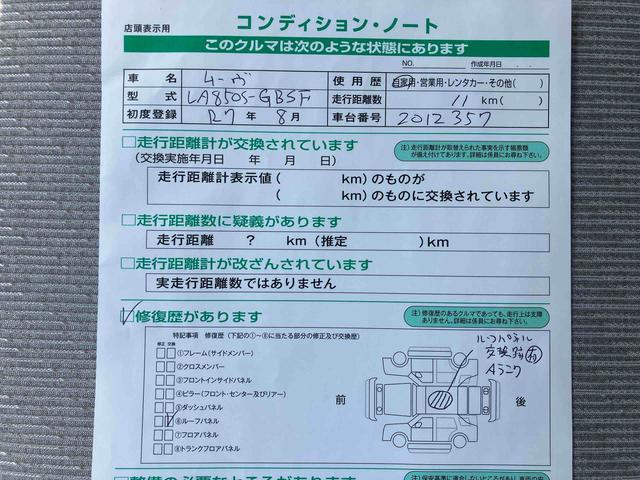 店頭表示用
コンディション・ノート
このクルマは次のような状態にあります
NO. 作成年月日
車名 ムーヴ 使用歴 自家用・営業用・レンタカー・その他( )
型式 LA850S-GBSF 走行距離数 11 km( )
初度登録 R7年 8月 車台番号 2012357
□走行距離計が交換されています
(交換実施年月日 年 月 日)
注)走行距離計が取替えられた事実を示す帳票類が備え付けてあります。詳細は係員にお尋ね下さい。
走行距離計表示値( km)のものが
( km)のものに交換されています
□走行距離数に疑義があります
走行距離 ? km(推定 )km
□走行距離計が改ざんされています
実走行距離数ではありません
□修復歴があります
注)修復歴のあるクルマであっても、走行上は支障ありません。詳細は係員にお尋ね下さい。
特記事項 修復歴(下記の①~⑧に当たる部分の修正及び交換歴)
修正 交換
□□①フレーム(サイドメンバー)
□□②クロスメンバー
□□③フロントインサイドパネル
□□④ピラー(フロント・センター及びリアー)
□□⑤ダッシュパネル
□□⑥ルーフパネル
□□⑦フロアパネル
□□⑧トランクフロアパネル
前
後
ルーフパネル
交換跡有
Aランク